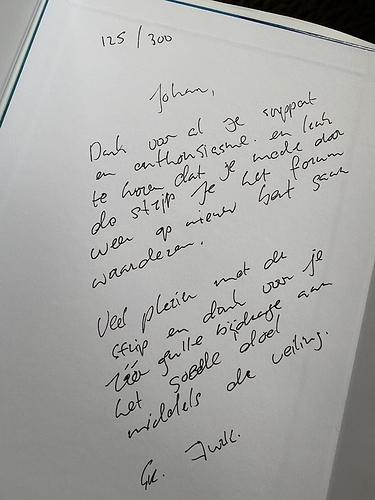 125 / 300
Johan,
Dank voor al je support
en enthousiasme. en leuk
te horen dat je mede door
de strip je het forum
weer op nieuw bent gaan
waarderen.
Veel plezier met de
strip en dank voor je
zéér gulle bijdrage aan
het goede doel
middels de veiling.
Gr.